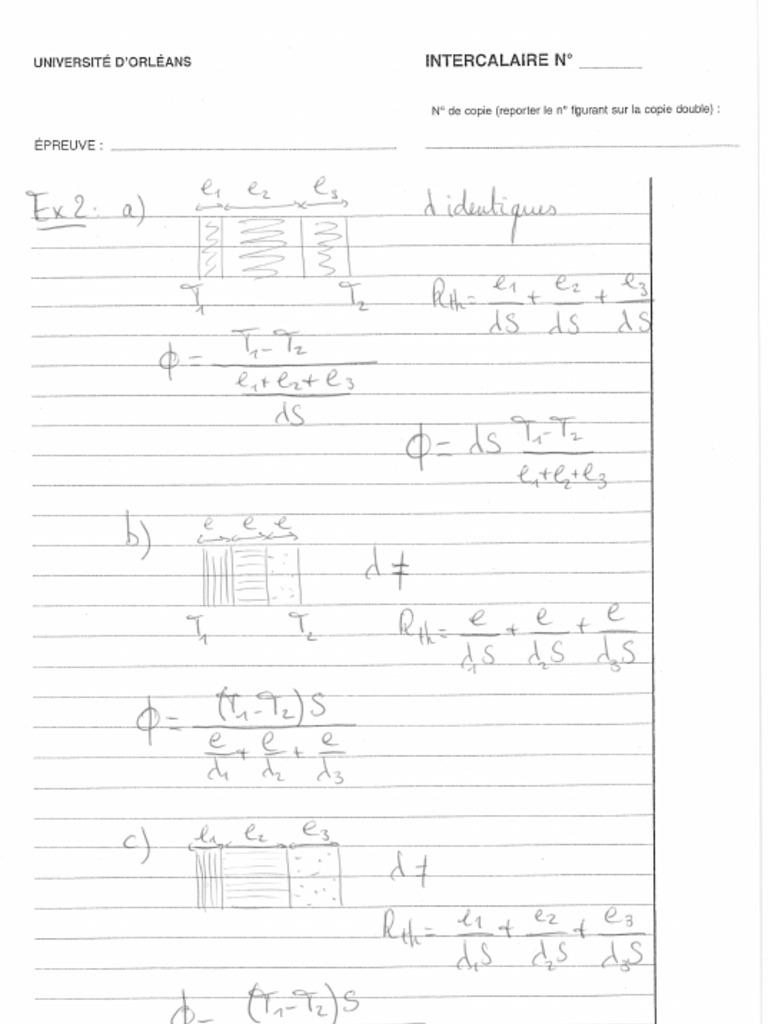 UNIVERSITÉ D'ORLÉANS
INTERCALAIRE N° ______
N° de copie (reporter le n° figurant sur la copie double) :
ÉPREUVE : ______
Ex 2: a)
e1 e2 e3
λ identiques
T1 T2
Rth = e1/λS + e2/λS + e3/λS
ϕ = (T1-T2)/((e1+e2+e3)/λS)
ϕ = λS (T1-T2)/(e1+e2+e3)
b)
e e e
λ ≠
T1 T2
Rth = e/λ1S + e/λ2S + e/λ3S
ϕ = (T1-T2)S/(e/λ1 + e/λ2 + e/λ3)
c)
e1 e2 e3
λ ≠
Rth = e1/λ1S + e2/λ2S + e3/λ3S
ϕ = (T1-T2)S